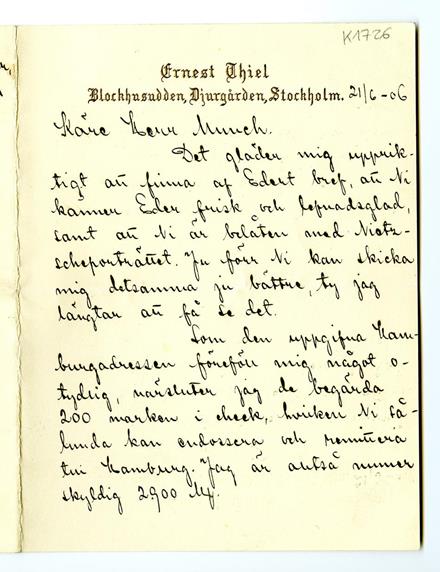 K1726
Ernest Thiel
Blockhusudden, Djurgården, Stockholm. 21/6-06
Käre Herr Munch.
Det gläder mig upprik-
tigt att finna af Edert bref, att Ni
känner Eder frisk och lefnadsglad,
samt att Ni är belåten med Nietz-
scheporträttet. Ju förr Ni kan skicka
mig detsamma ju bättre, ty jag
längtar att få se det.
Som den uppgifna Ham-
burgadressen föreföll mig något o-
tydlig, närsluter jag de begärda
200 marken i check, hvilken Ni så-
lunda kan endossera och remittera
till Hamburg. Jag är alltså numer
skyldig 2900 M.